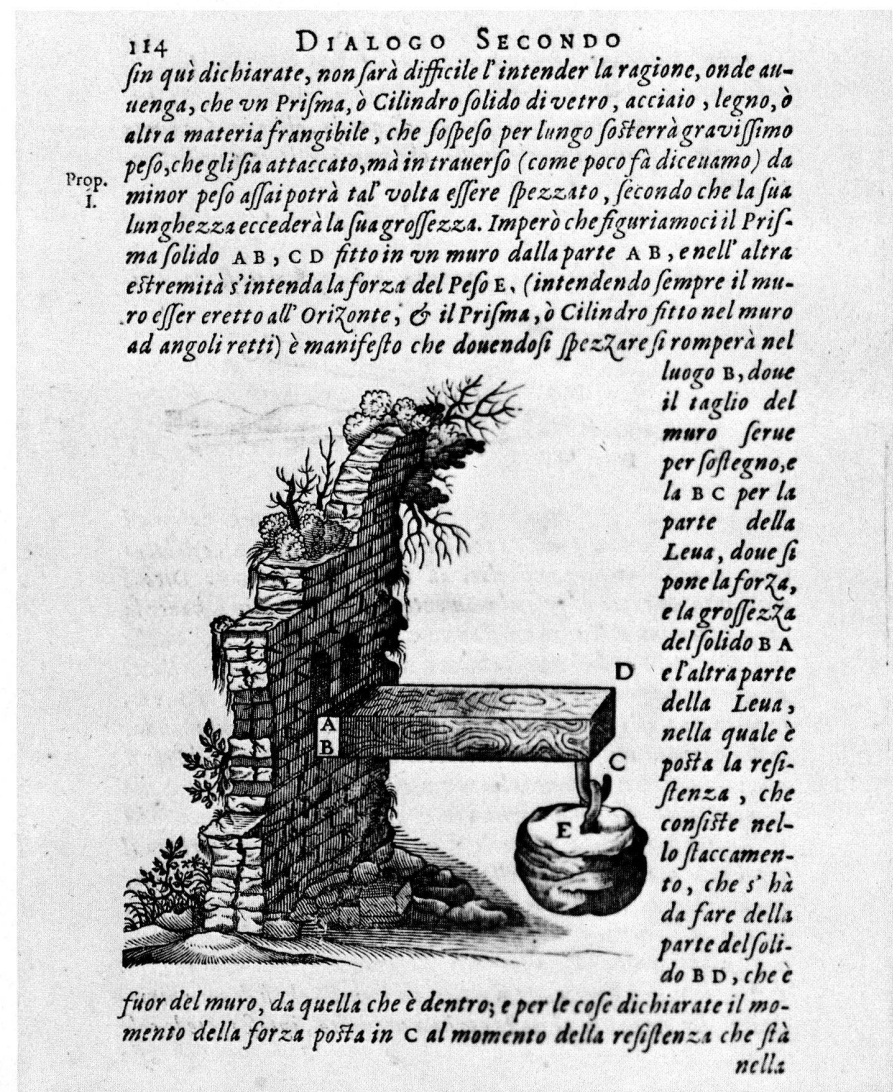 114 DIALOGO SECONDO
ſin quì dichiarate, non ſarà difficile l'intender la ragione, onde au-
uenga, che vn Priſma, ò Cilindro ſolido di vetro, acciaio, legno, ò
altra materia frangibile, che ſoſpeſo per lungo ſoſterrà gravißimo
peſo, che gli ſia attaccato, mà in trauerſo (come poco fà diceuamo) da
Prop.
I.
minor peſo aſſai potrà tal' volta eſſere ſpezzato, ſecondo che la ſua
lunghezza eccederà la ſua groſſezza. Imperò che figuriamoci il Priſ-
ma ſolido AB, CD fitto in vn muro dalla parte AB, e nell' altra
eſtremità s'intenda la forza del Peſo E, (intendendo ſempre il mu-
ro eſſer eretto all' Orizonte, & il Priſma, ò Cilindro fitto nel muro
ad angoli retti) è manifeſto che douendoſi ſpezzare ſi romperà nel
luogo B, doue
il taglio del
muro ſerue
per ſoſtegno, e
la BC per la
parte della
Leua, doue ſi
pone la forza,
e la groſſezza
del ſolido BA
e l'altra parte
della Leua,
nella quale è
poſta la reſi-
ſtenza, che
conſiſte nel-
lo ſtaccamen-
to, che s' hà
da fare della
parte del ſoli-
do BD, che è
fuor del muro, da quella che è dentro; e per le coſe dichiarate il mo-
mento della forza poſta in C al momento della reſiſtenza che ſtà
nella
A
B
D
C
E